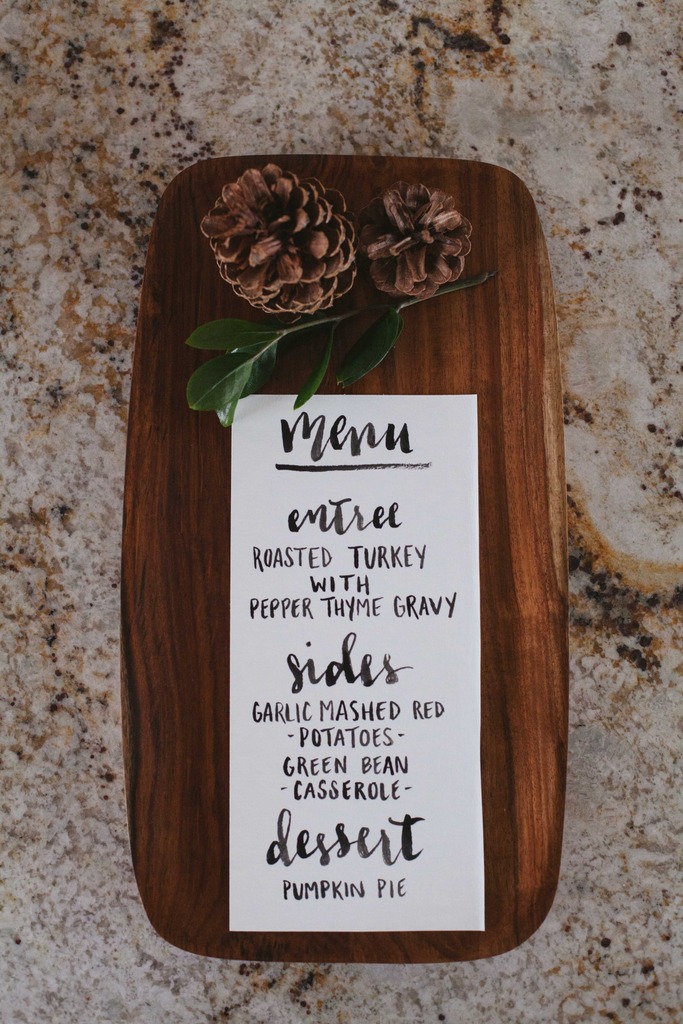 menu
entree
ROASTED TURKEY
WITH
PEPPER THYME GRAVY
sides
GARLIC MASHED RED
-POTATOES-
GREEN BEAN
-CASSEROLE-
dessert
PUMPKIN PIE